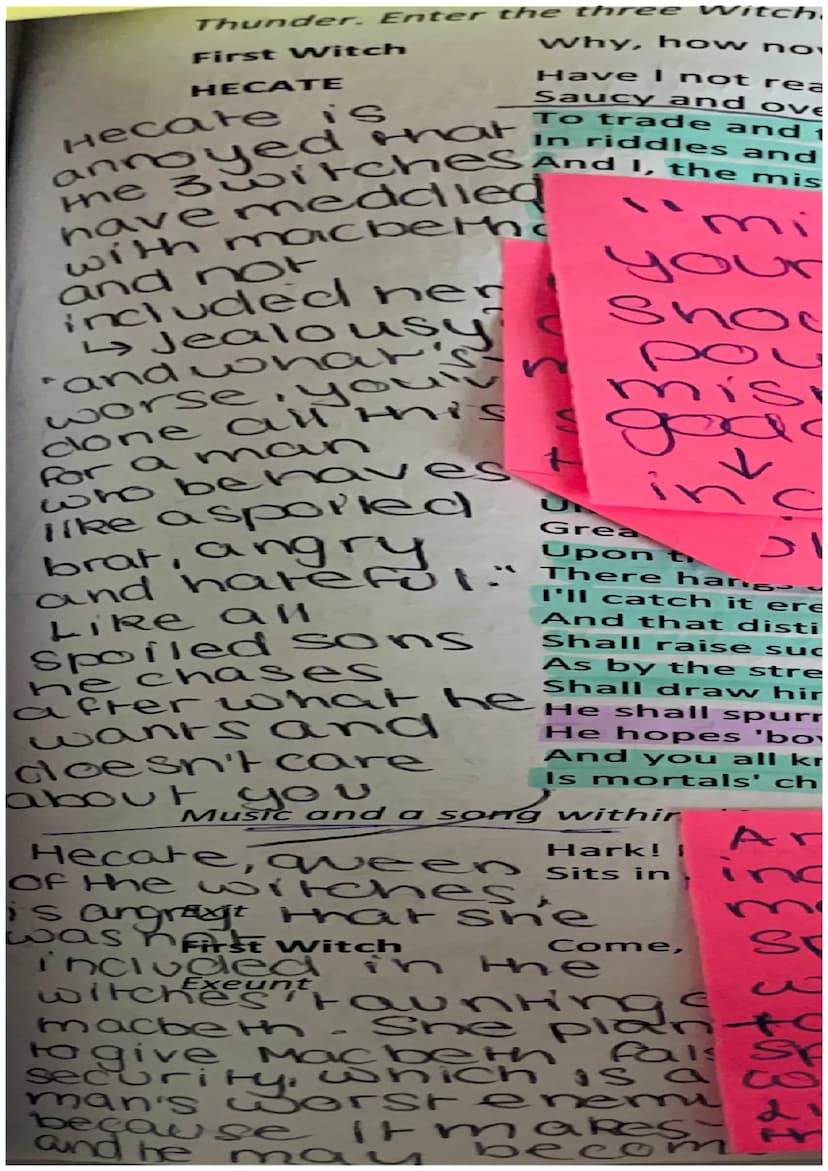 Thunder. Enter the three Witch
First Witch
Why, how no
HECATE
Have I not rea
Saucy and ove
To trade and
In riddles and
And I, the mis
Hecate is
annoyed that
the 3 witches
have meddled
with macbeth
and not
included her
↳ Jealousy?
"and what's
worse, you've
done all this
for a man
who behaves
like a spoiled
brat, angry
and hateful."
Like all
spoiled sons
he chases
after what he
wants and
doesn't care
about you
"mi
your
Sho
pou
mis
godd
↓
in c
Grea
Upon t
There hangs
I'll catch it ere
And that disti
Shall raise suc
As by the stre
Shall draw hir
He shall spurr
He hopes 'bov
And you all kr
Is mortals' ch
Music and a song within
Hark!
Sits in
Hecate, queen
of the witches,
is angry that she
Exit
was not
First Witch
Come,
included in the
Exeunt
witches' taunting
macbeth. She plan
to give Macbeth fals
security, which is a
man's worst enemy
because it makes
and he may becom
Ar
inc
m
Sp
w
to
sp
wo